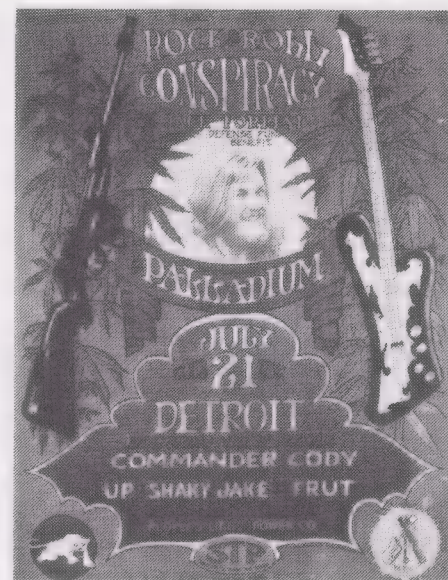 ROCK & ROLL
CONSPIRACY
DEFENSE FUND
BENEFIT
PALLADIUM
JULY
21
DETROIT
COMMANDER CODY
UP SHAKY JAKE FRUT
STP